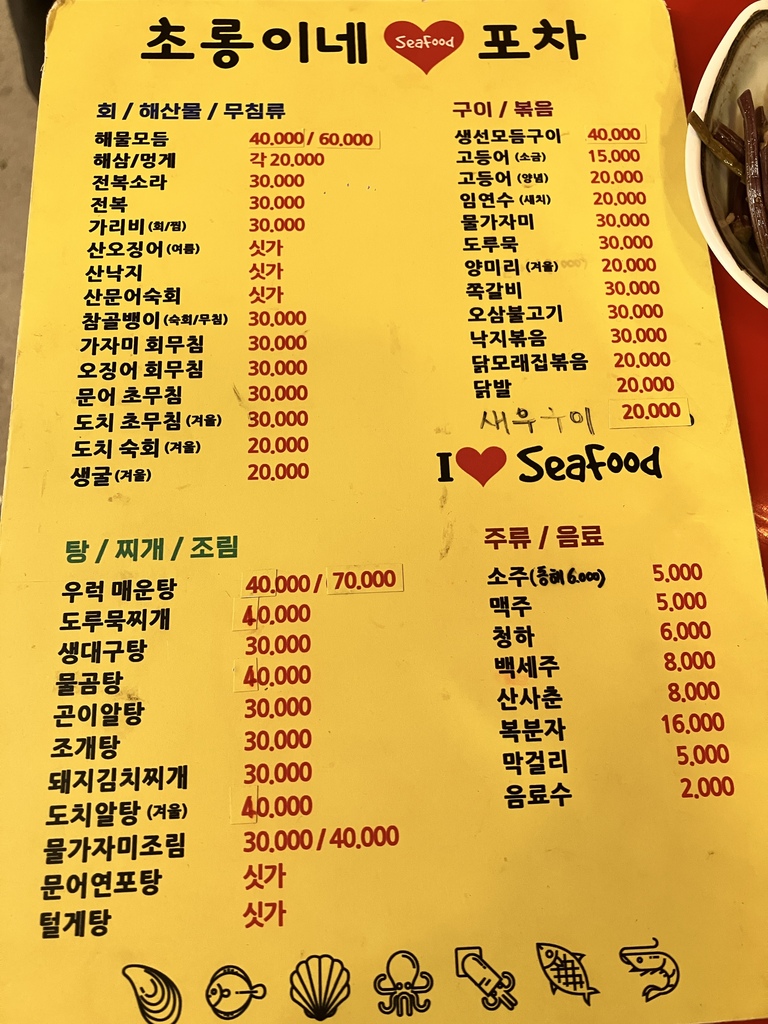 초롱이네 Seafood 포차
회 / 해산물 / 무침류
해물모듬 40.000 / 60.000
해삼/멍게 각 20.000
전복소라 30.000
전복 30.000
가리비 (회/찜) 30.000
산오징어 (여름) 싯가
산낙지 싯가
산문어숙회 싯가
참골뱅이 (숙회/무침) 30.000
가자미 회무침 30.000
오징어 회무침 30.000
문어 초무침 30.000
도치 초무침 (겨울) 30.000
도치 숙회 (겨울) 20.000
생굴 (겨울) 20.000
구이 / 볶음
생선모듬구이 40.000
고등어 (소금) 15.000
고등어 (양념) 20.000
임연수 (새치) 20.000
물가자미 30.000
도루묵 30.000
양미리 (겨울) 20.000
쪽갈비 30.000
오삼불고기 30.000
낙지볶음 30.000
닭모래집볶음 20.000
닭발 20.000
새우구이 20.000
I Seafood
탕 / 찌개 / 조림
우럭 매운탕 40.000 / 70.000
도루묵찌개 40.000
생대구탕 30.000
물곰탕 40.000
곤이알탕 30.000
조개탕 30.000
돼지김치찌개 30.000
도치알탕 (겨울) 40.000
물가자미조림 30.000 / 40.000
문어연포탕 싯가
털게탕 싯가
주류 / 음료
소주(동해 6.000) 5.000
맥주 5.000
청하 6.000
백세주 8.000
산사춘 8.000
복분자 16.000
막걸리 5.000
음료수 2.000